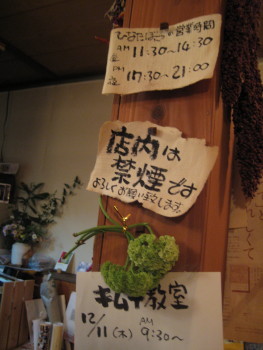 ひなたぼっこの営業時間
AM
11:30〜14:30
PM
17:30〜21:00
店内は
禁煙です
よろしくお願い致します。
キムチ教室
12/11(木) AM 9:30〜